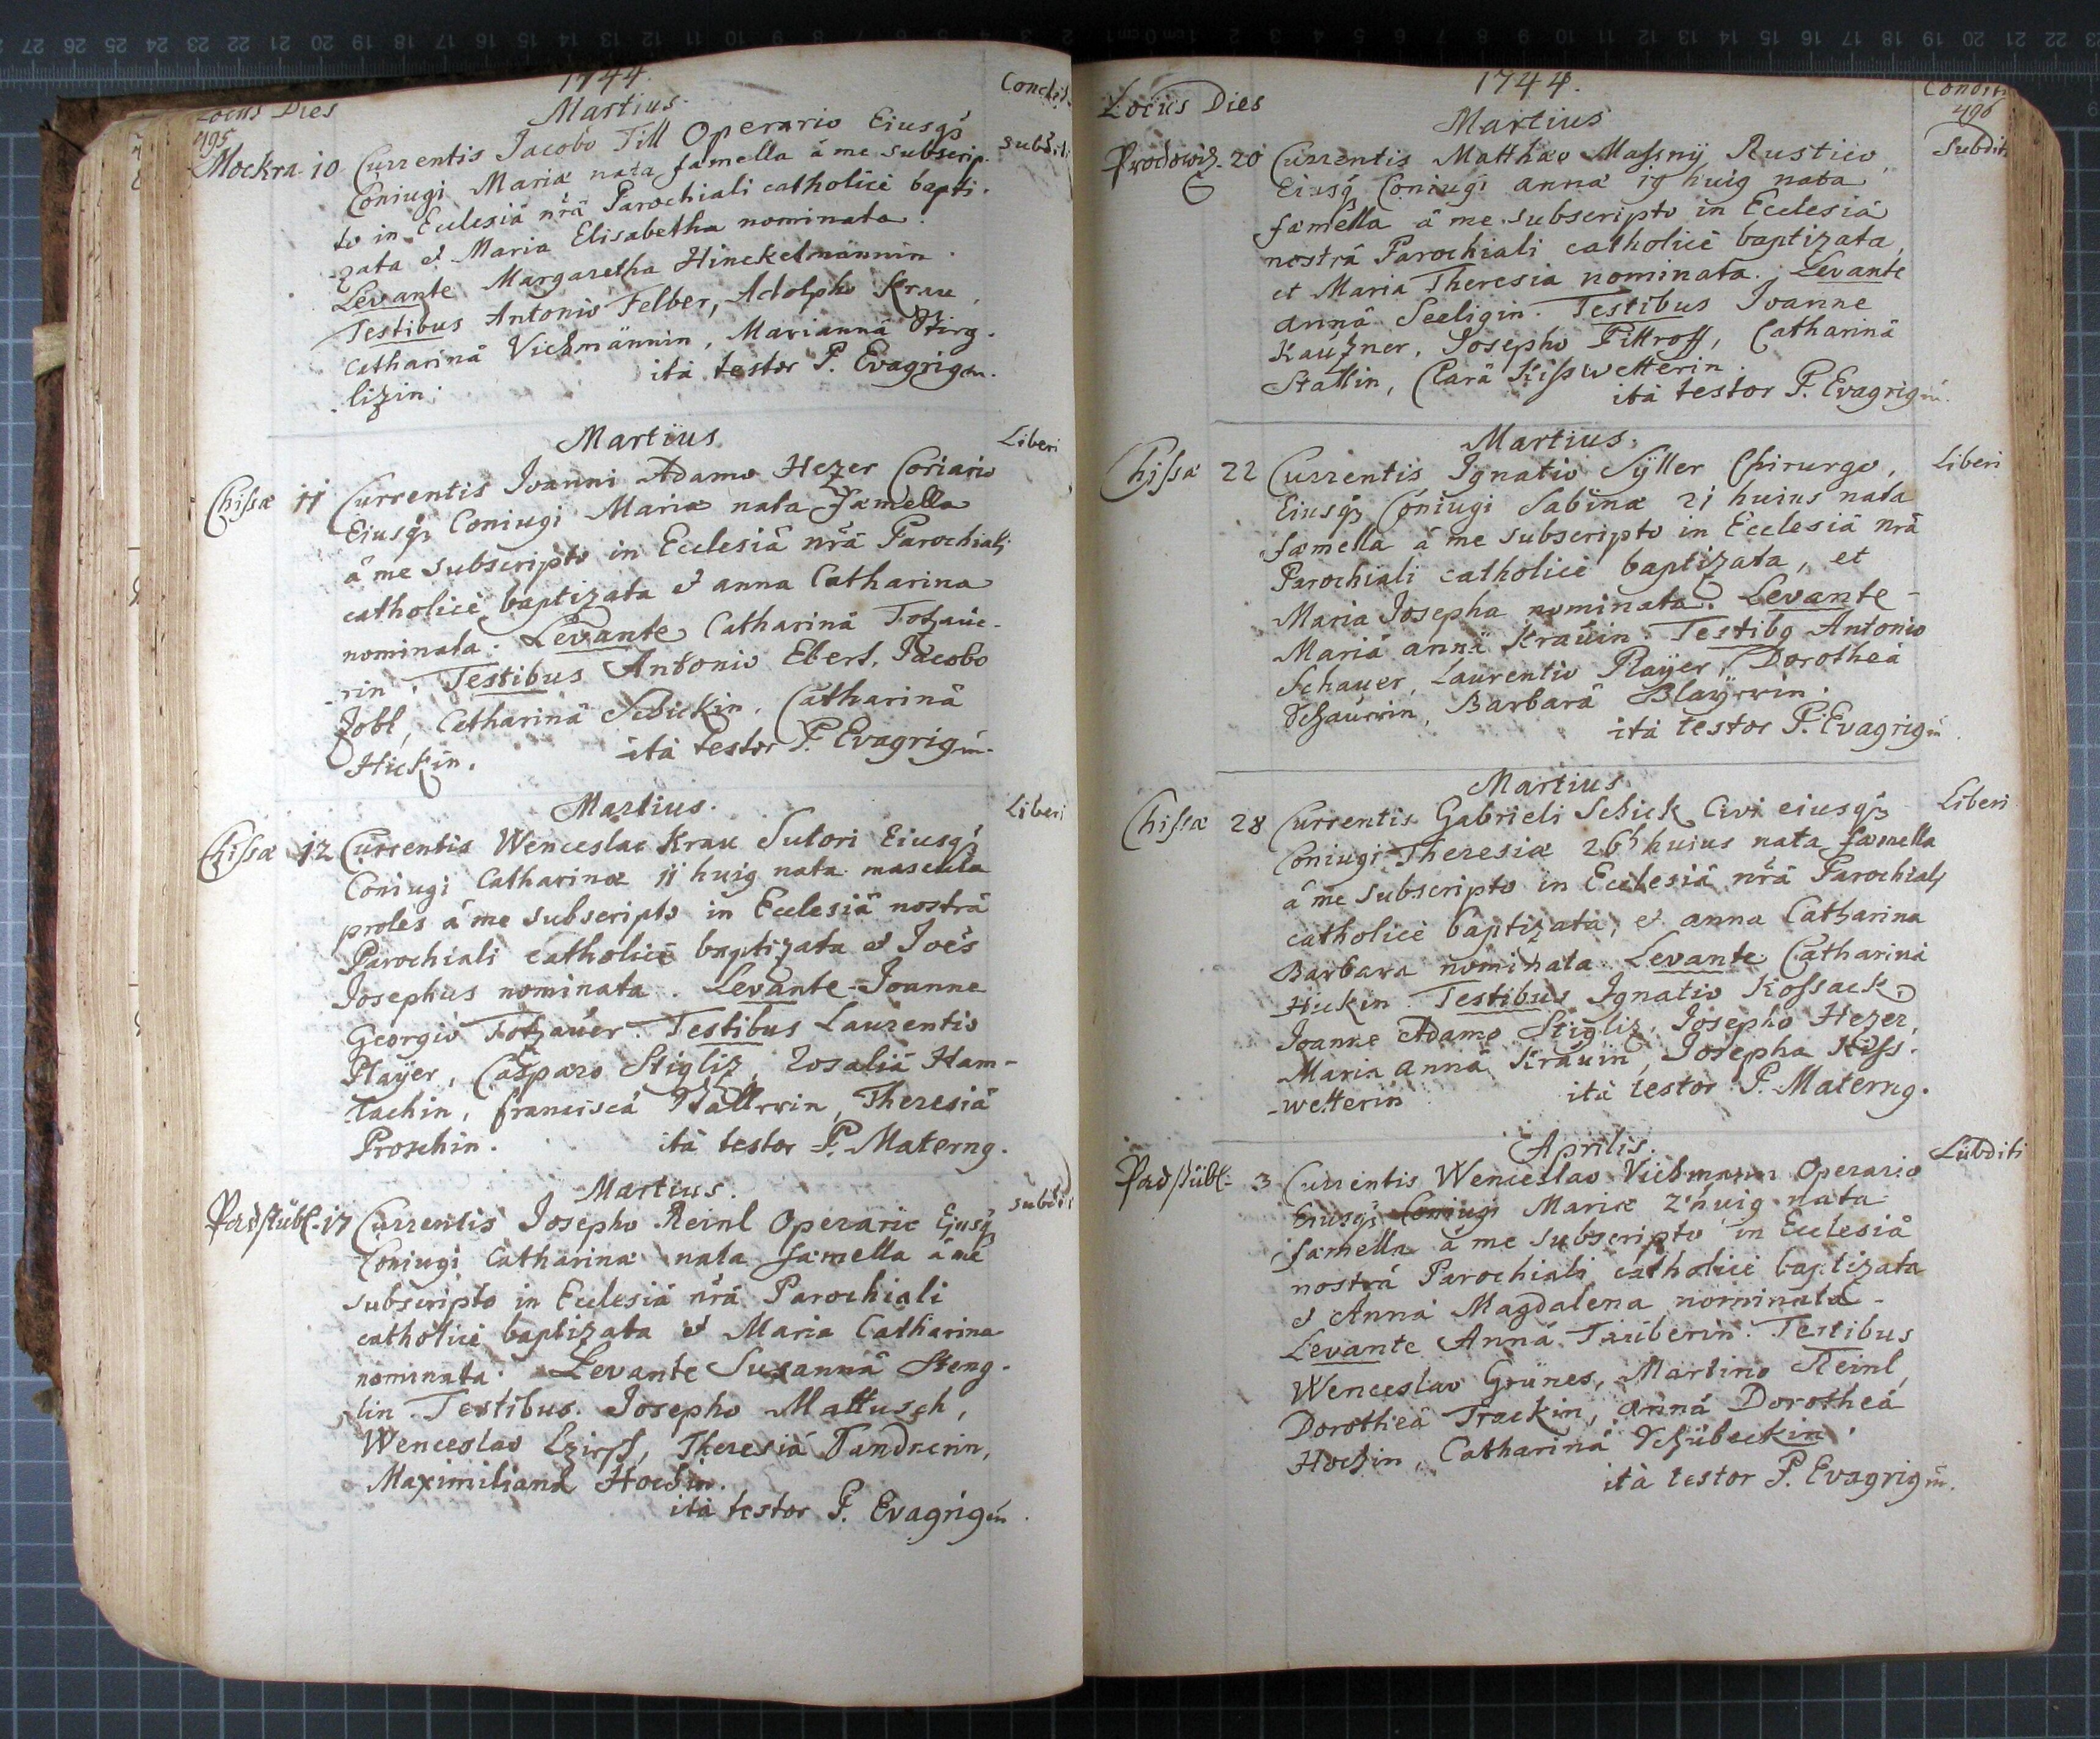 1744.
Locus Dies
Martius.
Condit.
495
Mockra 10 Currentis Jacobo Till Operario Eiusq3 subditi
Coniugi Mariæ nata fæmella â me subscrip-
to in Ecclesiâ nrâ Parochiali catholicè bapti-
-zata et Maria Elisabetha nominata.
Levante Margaretha Hinckelmännin.
Testibus Antonio Felber, Adolpho Krau,
Catharinâ Viehmännin, Mariannâ Stirg-
-lizin. ità testor P. Evagrig m.
Martius
Liberi
Chissæ 11 Currentis Ioanni Adamo Hezer Coriario
Eiusq3 Coniugi Mariæ nata Fæmella
â me subscripto in Ecclesiâ nrâ Parochiali
catholicè baptizata et anna Catharina
nominata. Levante Catharinâ Tozaue-
-rin. Testibus Antonio Ebert, Jacobo
Jobl, Catharinâ Schickin, Catharinâ
Hickin. ità testor P. Evagrig m.
Martius.
Liberi
Chissæ 12 Currentis Wenceslao Krau Sutori Eiusq3
Coniugi Catharinæ 11 huig nata mascula
proles â me subscripto in Ecclesiâ nostrâ
Parochiali catholicè baptizata et Joes
Josephus nominata. Levante Joanne
Georgio Tozauer. Testibus Laurentio
Player, Casparo Stigliz, Rosaliâ Ham-
tachin, franciscâ Wallrrin, Theresiâ
Proschin. ità testor P. Materng.
Martius.
Padstübl. 17 Currentis Josepho Reinl Operario Ejusq3 subditi
Coniugi Catharinæ nata fæmella â me
subscripto in Ecclesiâ nrâ Parochiali
catholicè baptizata et Maria Catharina
nominata. Levante Susannâ Steng-
lin. Testibus Josepho Mattusch,
Wenceslao, Theresiâ Tandnerin,
Maximilianâ Hochin.
ità testor P. Evagrig m.
1744.
Locus Dies
Martius
Condit.
496
Prodowiz. 20 Currentis Matthæo Massnÿ Rustico, Subditi
Eiusq3 Coniugi annæ 19 huig nata
fæmella â me subscripto in Ecclesiâ
nostrâ Parochiali catholicè baptizata,
et Maria Theresia nominata. Levante
annâ Seeligin. Testibus Joanne
Kauzner, Josepho Pittroff, Catharinâ
Stallin, Clarâ Kisswetterin.
ità testor P. Evagrig m.
Martius.
Chissæ 22 Currentis Ignatio Sÿller Chirurgo, Liberi
Eiusq3 Coniugi Sabinæ 21 huius nata
fæmella â me subscripto in Ecclesiâ nrâ
Parochiali catholicè baptizata, et
Maria Josepha nominata. Levante
Mariâ annâ Krauin. Testibg Antonio
Schauer, Laurentio Player, Dorotheâ
Schaurrin, Barbarâ Blaÿrrin.
ità testor P. Evagrig m.
Martius
Chissæ 28 Currentis Gabrieli Schick Civi eiusq3 Liberi
Coniugi Theresiæ 26 huius nata fæmella
â me subscripto in Ecclesiâ nrâ Parochiali
catholicè baptizata, et anna Catharina
Barbara nominata. Levante Catharinâ
Hickin. Testibus Ignatio Kossack,
Joanne Adamo Stigliz, Josepho Hezer,
Mariâ annâ Krauin, Josepha Kiss-
-wetterin ità testor P. Materng.
Aprilis.
Padstübl. 3 Currentis Wenceslao Viehmann Operario Subditi
Eiusq3 Coniugi Mariæ 2 huig nata
fæmella â me subscripto in Ecclesiâ
nostrâ Parochiali catholicè baptizata
et Anna Magdalena nominata.
Levante Annâ Tauberin. Testibus
Wenceslao Grünes, Martino Reinl,
Dorotheâ Trackin, annâ Dorotheâ
Hochin, Catharinâ Schübeckin.
ità testor P. Evagrig m.